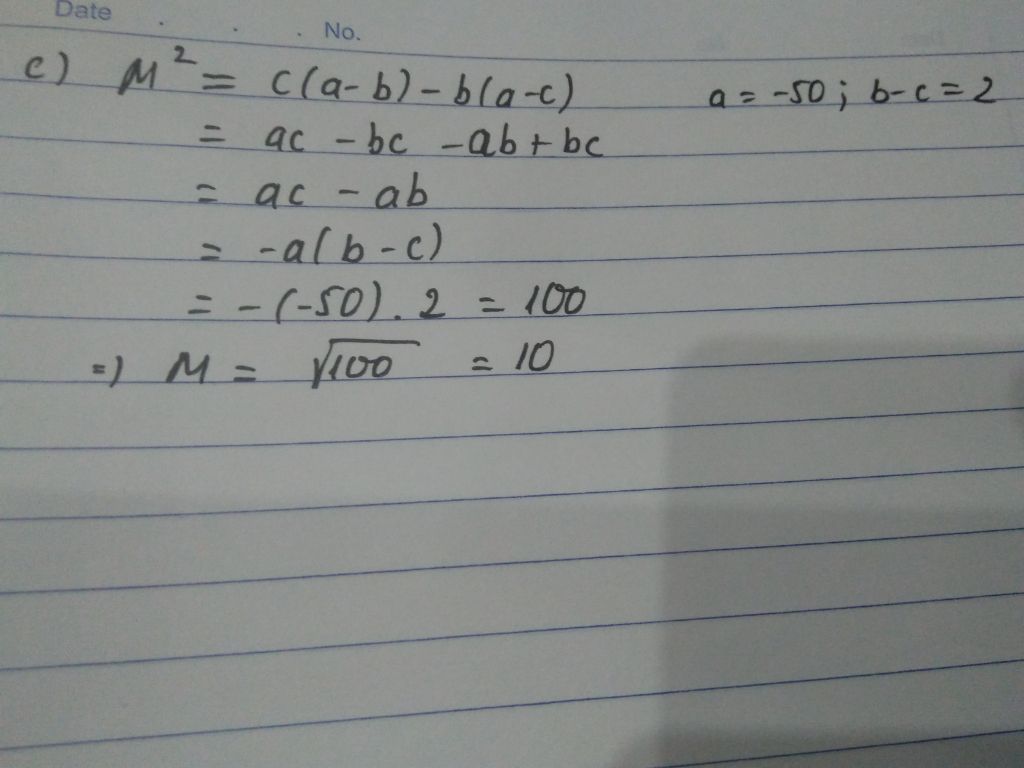 Date . . . No.
c) M² = c(a-b) - b(a-c) a = -50 ; b-c = 2
= ac - bc - ab + bc
= ac - ab
= -a(b-c)
= -(-50).2 = 100
=) M = √100 = 10